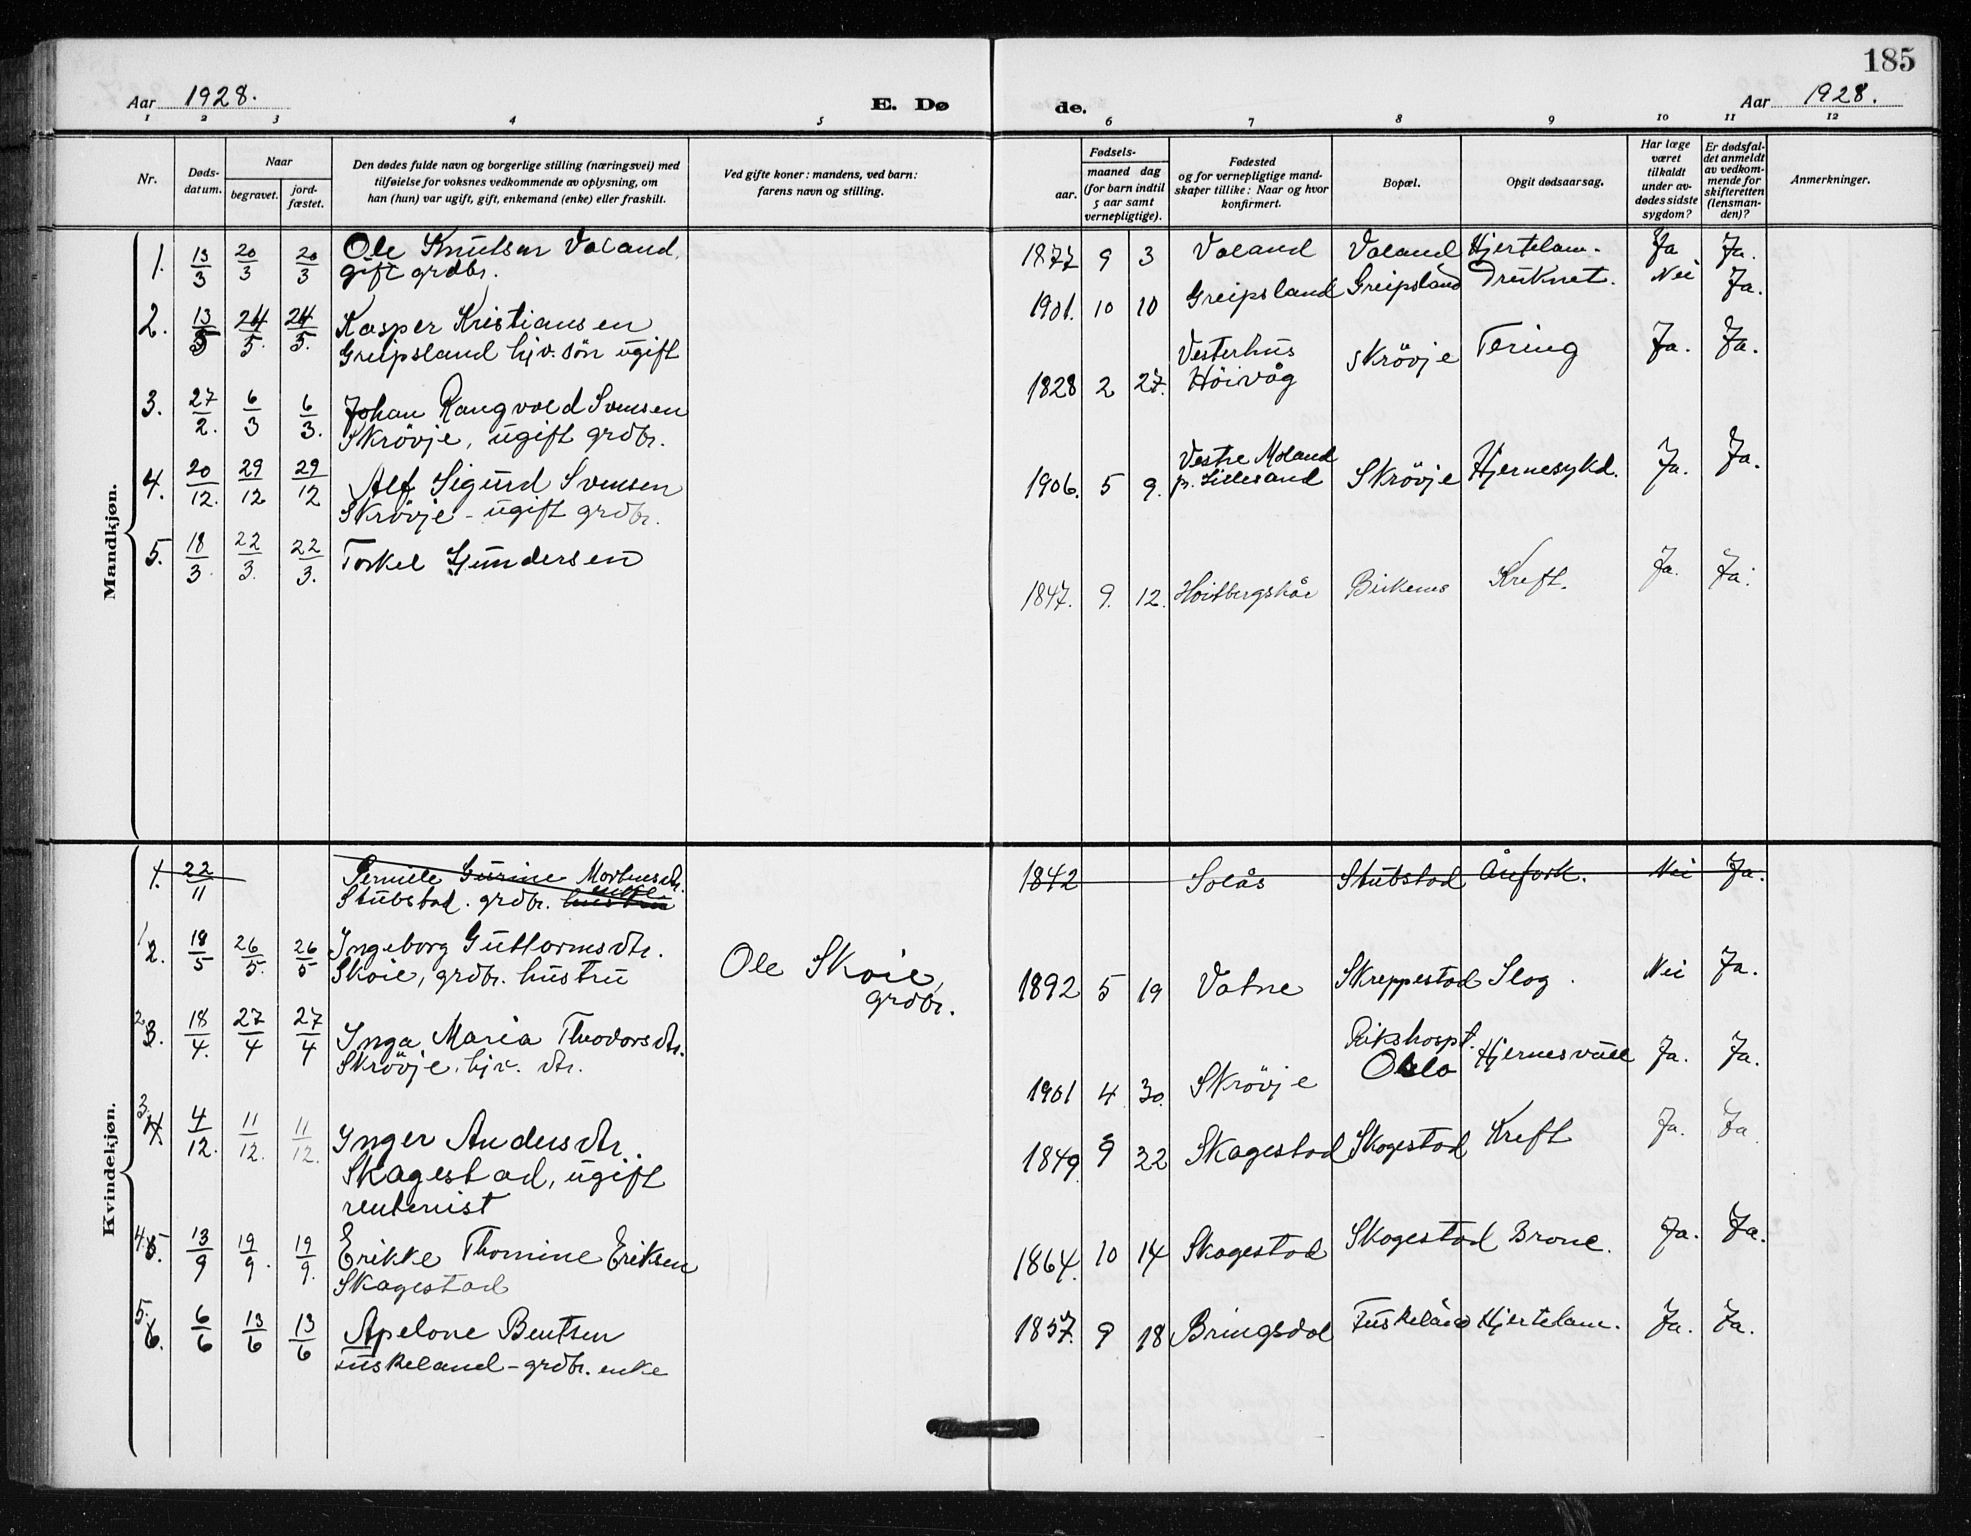 185
Aar 1928.
E. Dø
de.
Aar 1928.
1 2 3 4 5 6 7 8 9 10 11 12
Nr.
Døds-
datum.
Naar
begravet.
jord-
fæstet.
Den dødes fulde navn og borgerlige stilling (næringsvei) med
tilføielse for voksnes vedkommende av oplysning, om
han (hun) var ugift, gift, enkemand (enke) eller fraskilt.
Ved gifte koner: mandens, ved barn:
farens navn og stilling.
Fødsels-
aar.
maaned dag
(for barn indtil
5 aar samt
vernepligtige).
Fødested
og for vernepligtige mand-
skaper tillike: Naar og hvor
konfirmert.
Bopæl.
Opgit dødsaarsag.
Har læge
været
tilkaldt
under av-
dødes sidste
sygdom?
Er dødsfal-
det anmeldt
av vedkom-
mende for
skifteretten
(lensman-
den)?
Anmerkninger.
Mandkjøn.
1. 13/3 20/3 20/3 Ole Knutsen Valand, 1877 9 3 Valand Valand Hjertelam. Ja Ja.
gift grdbr.
2. 13/5 24/5. 24/5. Kasper Kristiansen 1901. 10 10 Greipsland Greipsland Druknet. Nei Ja.
Greipsland hjv. søn ugift
3. 27/2. 6/3 6/3. Johan Rangvald Svensen 1828 2 27. Vesterhus Skrövje Tering Ja. Ja.
Skrövje, ugift grdbr. Höivåg
4. 20/12. 29/12 29/12 Alf Sigurd Svensen 1906. 5 9. Vestre Moland Skrövje Hjernesykd. Ja. Ja.
Skrövje - ugift grdbr. p. Lillesand
5. 18/3. 22/3. 22/3. Torkel Gundersen 1847. 9. 12. Birkenes Kreft. Ja. Ja.
Kvindekjøn.
1. 22/11 Gurine Mortensdtr. 1842 Solås Stubstad Nei Ja.
Stubstad. grdbr. hustru enke
1 2. 18/5 26/5. 26/5 Ingeborg Guttormsdtr. Ole Skoie, 1892 5 19 Vatne Skreppestad Slag. Nei Ja.
Skoie, grdbr. hustru grdbr.
2 3. 18/4. 27/4 27/4 Inga Maria Theodorsdtr. 1901 4 30. Skrövje Rikshospt. Hjernesvull Ja. Ja.
Skrövje. hjv. dtr. Oslo
3 4 4/12. 11/12. 11/12. Inger Andersdtr. 1849 9 22 Skagestad Skagestad Kreft Ja. Ja.
Skagestad, ugift
rentenist
4. 5. 13/9 19/9. 19/9. Erikke Thomine Eriksen 1864. 10 14 Skagestad Skagestad Ja. Ja.
Skagestad
5. 6. 6/6 13/6 13/6 Apelone Bentsen 1857. 9 18 Bringsdal Tuskeland Hjertelam. Ja. Ja.
Tuskeland - grdbr. enke